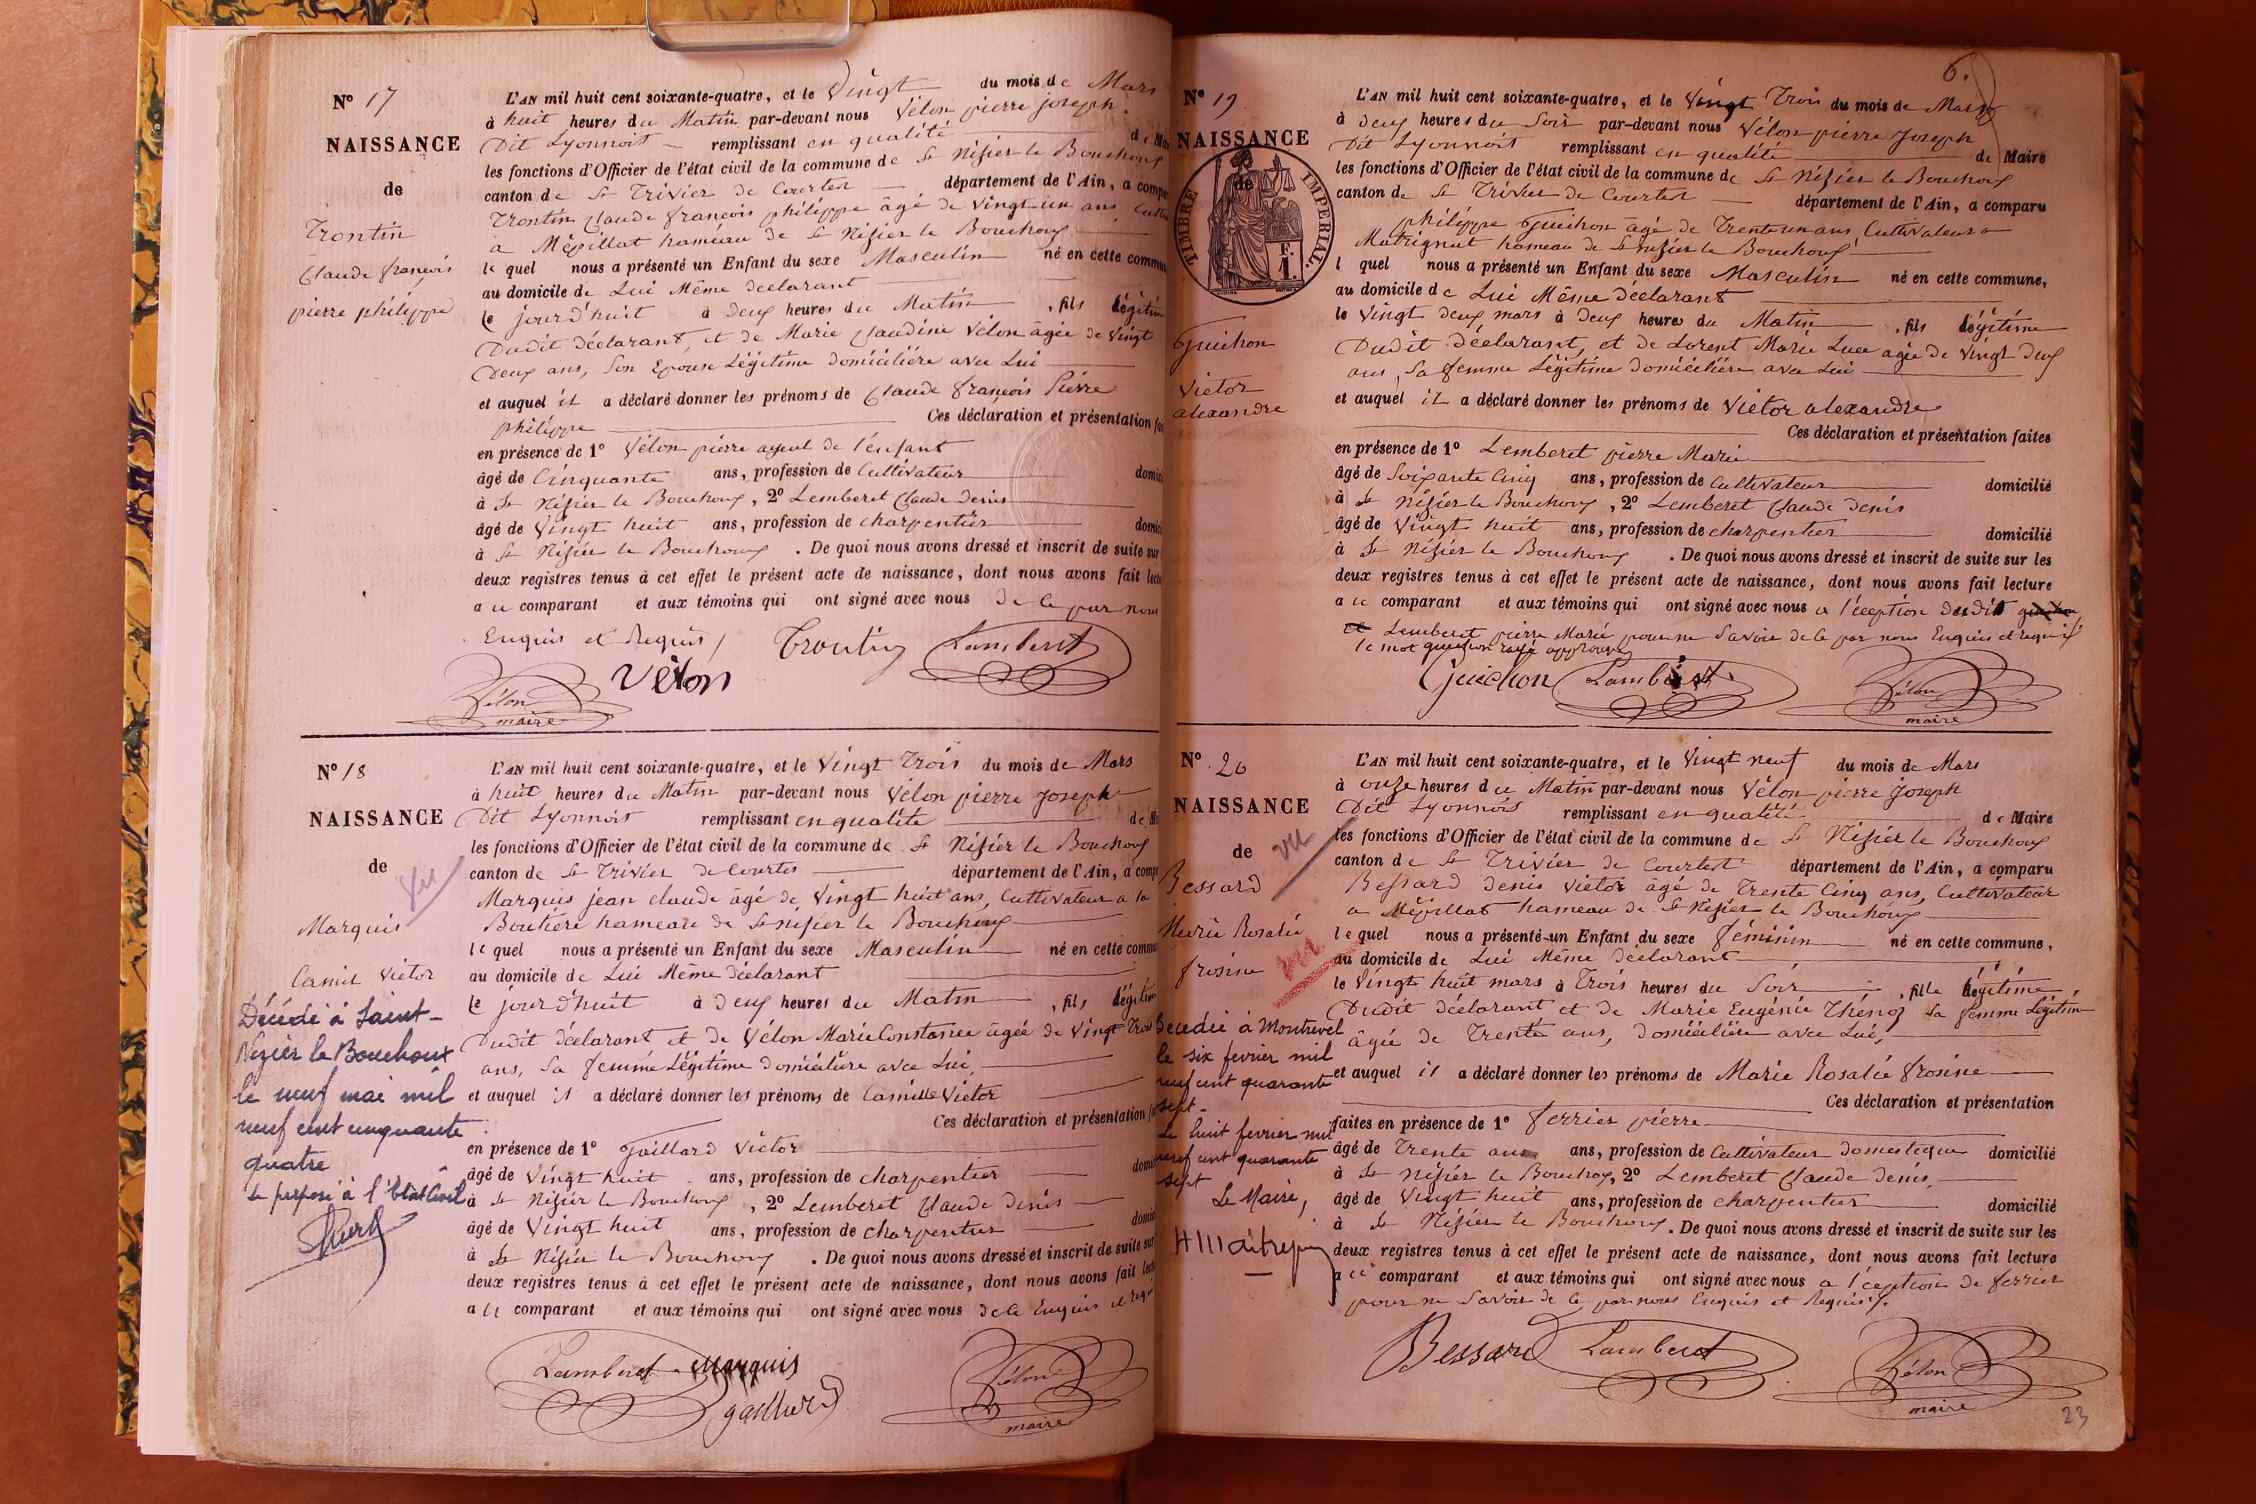 N° 17
NAISSANCE
de
Trontin
Claude françois
pierre philippe
L'AN mil huit cent soixante-quatre, et le Vingt du mois de Mars
à huit heures du Matin par-devant nous Vélon pierre joseph
Dit Lyonnois remplissant en qualité de
les fonctions d'Officier de l'état civil de la commune de St Nisier le Bouchoux
canton de St Trivier de Courtes département de l'Ain, a compa
Trontin Claude françois philippe âgé de Vingt-un ans
a Mépillat hameau de St Nisier le Bouchoux
le quel nous a présenté un Enfant du sexe Masculin né en cette commu
au domicile de Lui Même déclarant
le jourd'huit à Deux heures du Matin, fils légitim
Dudit déclarant, et de Marie Claudine Vélon âgée de Vingt
Deux ans, Son Epouse Légitime domiciliére avec Lui
et auquel il a déclaré donner les prénoms de Claude françois Pierre
philippe Ces déclaration et présentation
en présence de 1° Vélon pierre ayeul de l'enfant
âgé de Cinquante ans, profession de Cultivateur domi
à St Nisier le Bouchoux, 2° Lemberet Claude Denis
âgé de Vingt huit ans, profession de charpentier domi
à St Nisier le Bouchoux. De quoi nous avons dressé et inscrit de suite sur
deux registres tenus à cet effet le présent acte de naissance, dont nous avons fait lect
a ce comparant et aux témoins qui ont signé avec nous De ce par nous
Enquis et Requis
Trontin Lamberet
Vélon
Vélon
maire
N° 18
NAISSANCE
de
vu
Marquis
Camil Victor
Décédé à Saint-
Nizier le Bouchoux
le neuf mai mil
neuf cent cinquante
quatre
Le préposé à l'Etat Civil
L'AN mil huit cent soixante-quatre, et le Vingt Trois du mois de Mars
à huit heures du Matin par-devant nous Vélon pierre joseph
Dit Lyonnois remplissant en qualité de
les fonctions d'Officier de l'état civil de la commune de St Nisier le Bouchoux
canton de St Trivier de Courtes département de l'Ain, a comp
Marquis jean claude âgé de Vingt huit ans, Cultivateur a la
hameau de St Nisier le Bouchoux
le quel nous a présenté un Enfant du sexe Masculin né en cette commu
au domicile de Lui Même déclarant
le jourd'huit à Deux heures du Matin, fils légitim
Dudit déclarant et de Vélon Marie Constance âgée de Vingt Trois
ans, Sa femme Légitime domiciliére avec Lui,
et auquel il a déclaré donner les prénoms de Camille Victor
Ces déclaration et présentation
en présence de 1° Gaillard Victor
âgé de Vingt huit ans, profession de charpentier domi
à St Nisier le Bouchoux, 2° Lemberet Claude Denis
âgé de Vingt huit ans, profession de charpentier domi
à St Nisier le Bouchoux. De quoi nous avons dressé et inscrit de suite sur
deux registres tenus à cet effet le présent acte de naissance, dont nous avons fait lect
a ce comparant et aux témoins qui ont signé avec nous de ce Enquis et
Lamberet Marquis
gaillard
Vélon
maire
6.
N° 19
NAISSANCE
de
TIMBRE IMPERIAL
F.
1.
Guichon
Victor
alexandre
L'AN mil huit cent soixante-quatre, et le Vingt Trois du mois de Mars
à deux heures du Soir par-devant nous Vélon pierre Joseph
Dit Lyonnois remplissant en qualité de Maire
les fonctions d'Officier de l'état civil de la commune de St Nisier le Bouchoux
canton de St Trivier de Courtes département de l'Ain, a comparu
philippe Guichon âgé de Trente un ans Cultivateur a
Matrignat hameau de St nisier le Bouchoux
l quel nous a présenté un Enfant du sexe Masculin né en cette commune,
au domicile de Lui Même déclarant
le Vingt deux mars à deux heures du Matin, fils légitime
Dudit déclarant, et de Lorent Marie Luce âgée de vingt deux
ans, Sa femme Légitime domiciliére avec Lui
et auquel il a déclaré donner les prénoms de Victor alexandre
Ces déclaration et présentation faites
en présence de 1° Lemberet pierre Marie
âgé de Soixante Cinq ans, profession de Cultivateur domicilié
à St Nisier le Bouchoux, 2° Lemberet Claude Denis
âgé de Vingt huit ans, profession de charpentier domicilié
à St Nisier le Bouchoux. De quoi nous avons dressé et inscrit de suite sur les
deux registres tenus à cet effet le présent acte de naissance, dont nous avons fait lecture
a ce comparant et aux témoins qui ont signé avec nous a l'éception dudit guichon
et Lemberet pierre Marie pour ne Savoir de ce par nous Enquis et requis
le mot guichon rayé approuvé
Guichon Lamberet Vélon
maire
N° 20
NAISSANCE
de
vu
Bessard
Marie Rosalie
frosine
vu
Décédée à Montrevel
le six fevrier mil
neuf cent quarante
sept -
Le huit fevrier mil
neuf cent quarante
sept
Le Maire,
L'AN mil huit cent soixante-quatre, et le Vingt neuf du mois de Mars
à onze heures du Matin par-devant nous Vélon pierre Joseph
Dit Lyonnois remplissant en qualité de Maire
les fonctions d'Officier de l'état civil de la commune de St Nisier le Bouchoux
canton de St Trivier de Courtes département de l'Ain, a comparu
Bessard Denis Victor âgé de Trente Cinq ans, Cultivateur
a Mépillat hameau de St Nisier le Bouchoux
le quel nous a présenté un Enfant du sexe féminin né en cette commune,
au domicile de Lui Même déclarant
le Vingt huit mars à Trois heures du Soir, fille légitime
Dudit déclarant et de Marie Eugénie Thénoz Sa femme Légitim
âgée de Trente ans, domiciliére avec Lui,
et auquel il a déclaré donner les prénoms de Marie Rosalie frosine
Ces déclaration et présentation
faites en présence de 1° ferrier pierre
âgé de Trente ans ans, profession de Cultivateur domestique domicilié
à St Nisier le Bouchoux, 2° Lemberet Claude denis,
âgé de Vingt huit ans, profession de charpentier domicilié
à St Nisier le Bouchoux. De quoi nous avons dressé et inscrit de suite sur les
deux registres tenus à cet effet le présent acte de naissance, dont nous avons fait lecture
a ce comparant et aux témoins qui ont signé avec nous a l'éception de ferrier
pour ne Savoir de ce par nous Enquis et Requis.
Bessard Lamberet Vélon
maire
23